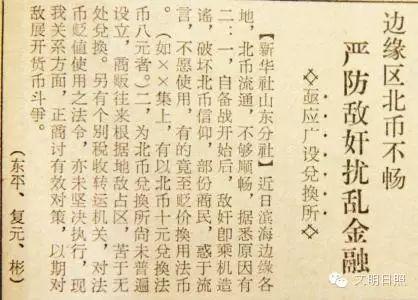 边缘区北币不畅
严防敌奸扰乱金融
◇亟应广设兑换所◇
【新华社山东分社】近日滨海边缘各
地，北币流通，不够顺畅，据悉原因有
二：一，自备战开始后，敌奸卽乘机造
谣，破坏北币信仰，部份商民，惑于流
言，不愿使用，有的竟至贬价换用法币
。（如××集上，有以北币十元兑换法
币八元者。）二，为北币兑换所尚未普遍
设立，商贩往来根据地敌占区，苦于无
处兑换。另有个别税收转运机关，对法
币贬值使用之法令，亦未坚决执行，现
我关系方面，正商讨有效对策，以期对
敌展开货币斗争。
（东平、复元、彬）
文明日照